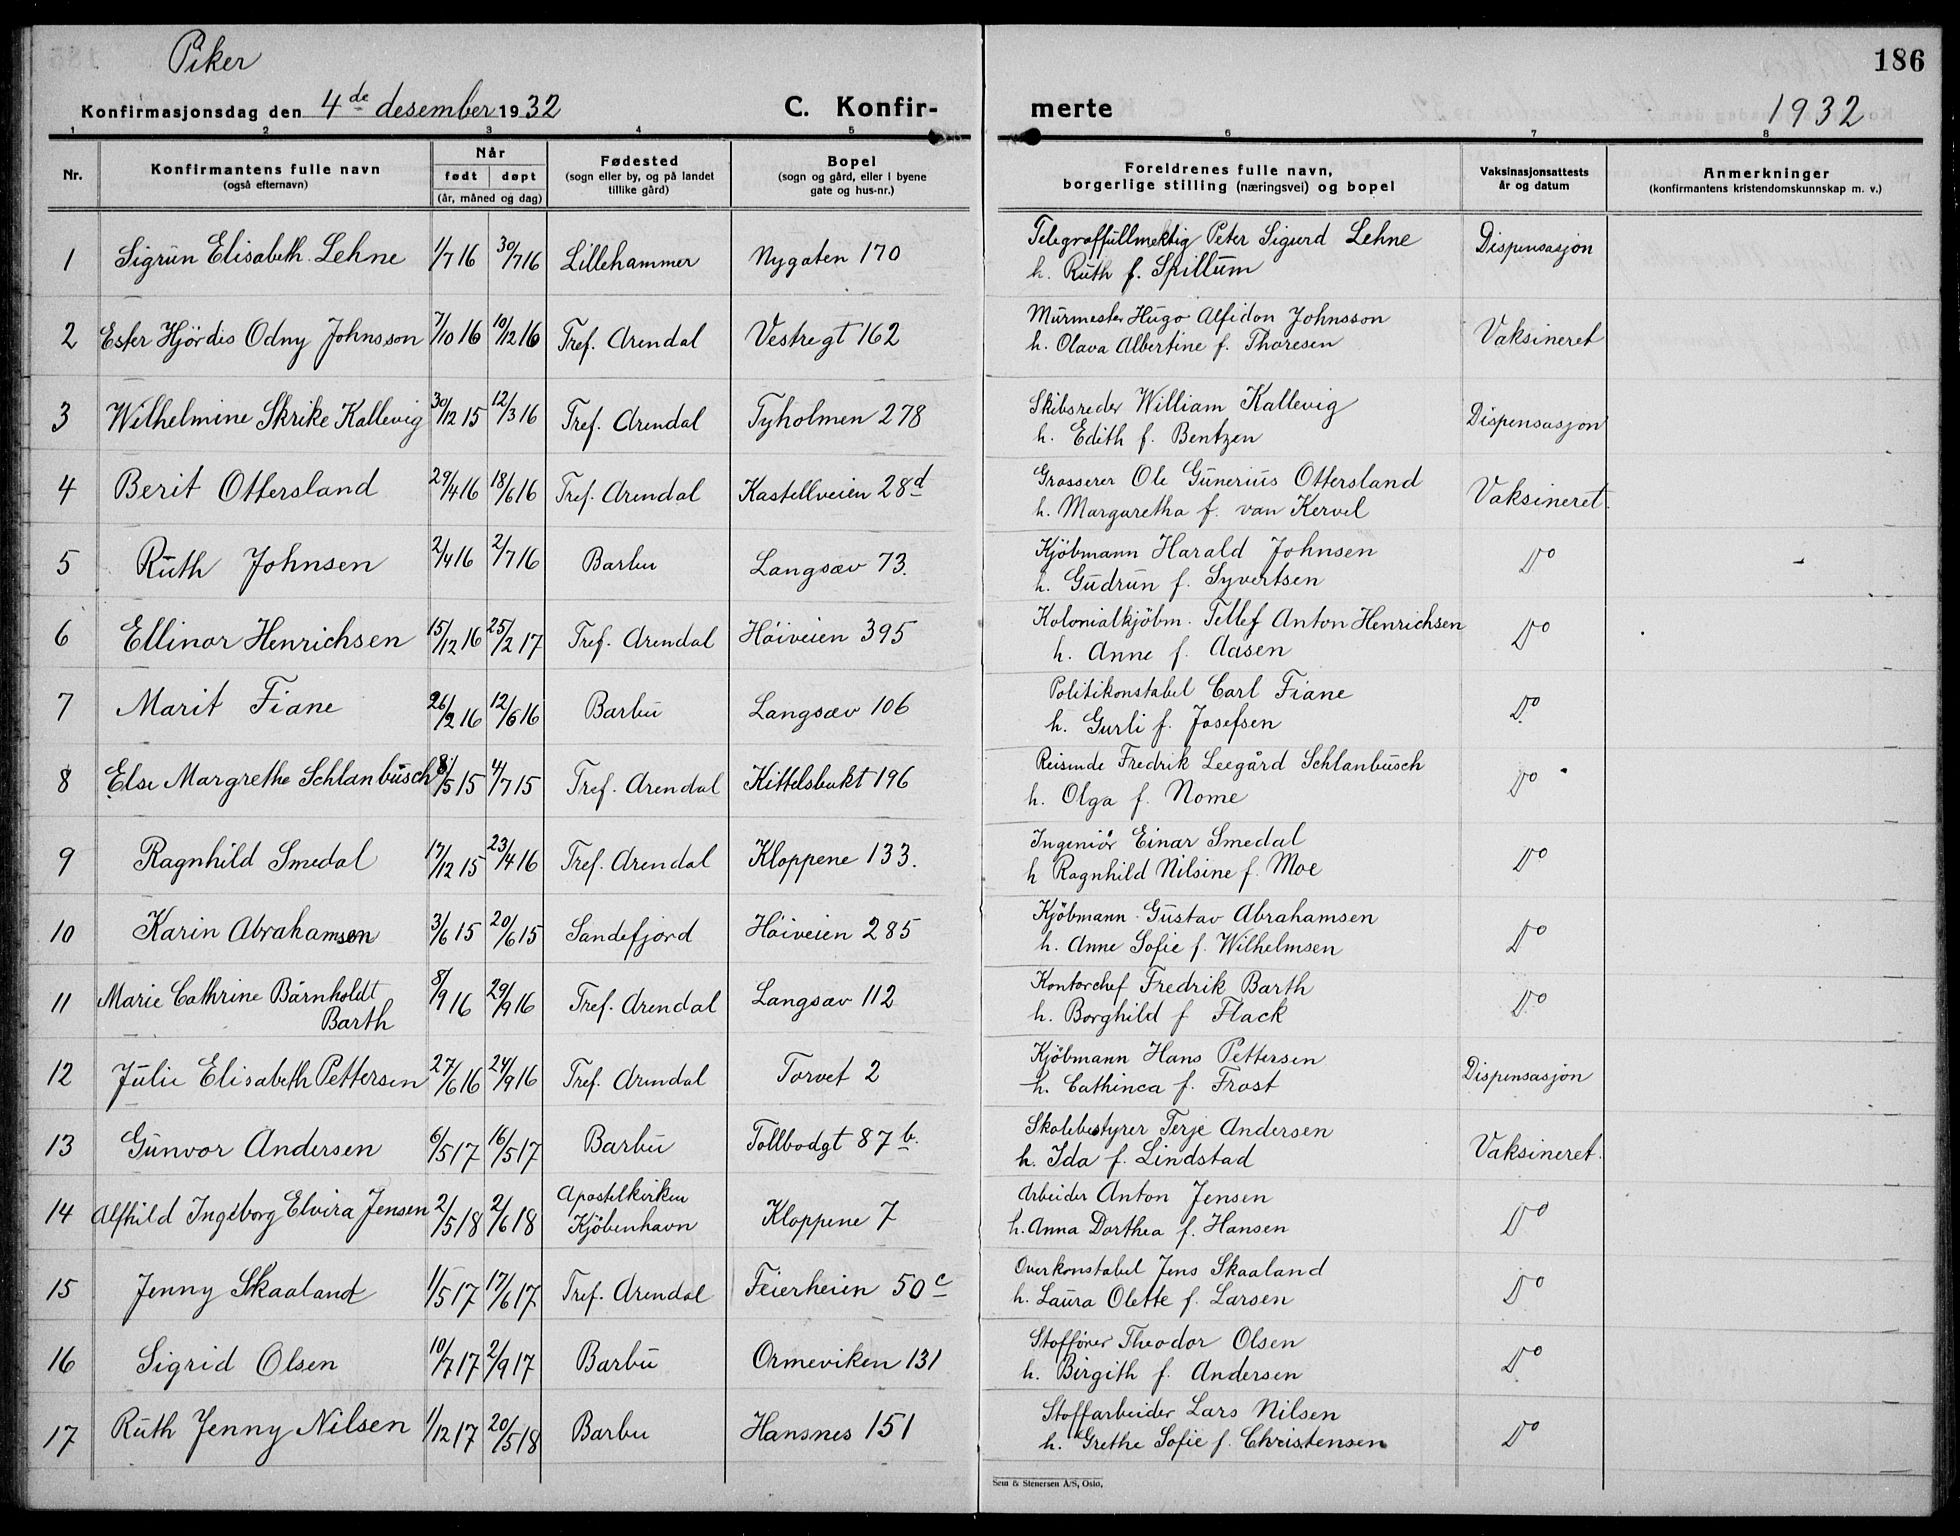 186
Piker
Konfirmasjonsdag den 4de desember 1932 C. Konfir- merte 1932
1 2 3 4 5 6 7 8
Nr. Konfirmantens fulle navn (også efternavn) Når født døpt (år, måned og dag) Fødested (sogn eller by, og på landet tillike gård) Bopel (sogn og gård, eller i byene gate og hus-nr.) Foreldrenes fulle navn, borgerlige stilling (næringsvei) og bopel Vaksinasjonsattests år og datum Anmerkninger (konfirmantens kristendomskunnskap m. v.)
1 Sigrun Elisabeth Lehne 1/7 16 30/7 16 Lillehammer Nygaten 170 Telegraffullmektig Peter Sigurd Lehne Dispensasjon
h. Ruth f. Spillum
2 Ester Hjördis Odny Johnsson 7/10 16 10/12 16 Tref. Arendal Vestregt 162 Murmester Hugo Alfidon Johnsson Vaksineret
h. Olava Albertine f. Thoresen
3 Wilhelmine Skrike Kallevig 30/12 15 12/3 16 Tref. Arendal Tyholmen 278 Skibsreder William Kallevig Dispensasjon
h. Edith f. Bentzen
4 Berit Ottersland 29/4 16 18/6 16 Tref. Arendal Kastellveien 28d Grosserer Ole Gunerius Ottersland Vaksineret.
h. Margaretha f. van Kervel
5 Ruth Johnsen 2/4 16 2/7 16 Barbu Langsæv 73. Kjöbmann Harald Johnsen Do
h. Gudrun f. Syvertsen
6 Ellinor Henrichsen 15/12 16 25/2 17 Tref. Arendal Höiveien 395 Kolonialkjöbm. Tellef Anton Henrichsen Do
h. Anne f. Aasen
7 Marit Fiane 26/2 16 12/6 16 Barbu Langsæv 106 Politikonstabel Carl Fiane Do
h. Gurli f. Josefsen
8 Else Margrethe Schlanbusch 8/5 15 4/7 15 Tref. Arendal Kittelsbukt 196 Reisende Fredrik Leegård Schlanbusch Do
h. Olga f. Nome
9 Ragnhild Smedal 17/12 15 23/4 16 Tref. Arendal Kloppene 133. Ingeniör Einar Smedal Do
h Ragnhild Nilsine f. Moe
10 Karin Abrahamsen 3/6 15 20/6 15 Sandefjord Höiveien 285 Kjöbmann Gustav Abrahamsen Do
h. Anne Sofie f. Wilhelmsen
11 Marie Cathrine Bärnholdt Barth 8/9 16 29/9 16 Tref. Arendal Langsæv 112 Kontorchef Fredrik Barth Do
h. Borghild f Flack
12 Julie Elisabeth Pettersen 27/6 16 24/9 16 Tref. Arendal Torvet 2 Kjöbmann Hans Pettersen Dispensasjon
h. Cathinca f. Frost
13 Gunvor Andersen 6/5 17 16/5 17 Barbu Tollbodgt 87b. Skolebestyrer Terje Andersen Vaksineret.
h. Ida f. Lindstad
14 Alfhild Ingeborg Elvira Jensen 2/5 18 2/6 18 Apostelkirken Kjöbenhavn Kloppene 7 Arbeider Anton Jensen Do
h. Anna Dorthea f. Hansen
15 Jenny Skaaland 1/5 17 17/6 17 Tref. Arendal Feierheien 50c Overkonstabel Jens Skaaland Do
h. Laura Olette f. Larsen
16 Sigrid Olsen 10/7 17 2/9 17 Barbu Ormeviken 131 Stofförer Theodor Olsen Do
h. Birgith f. Andersen
17 Ruth Jenny Nilsen 1/12 17 20/5 18 Barbu Hansnes 151 Stoffarbeider Lars Nilsen Do
h. Grethe Sofie f. Christensen
Sem & Stenersen A/S, Oslo.